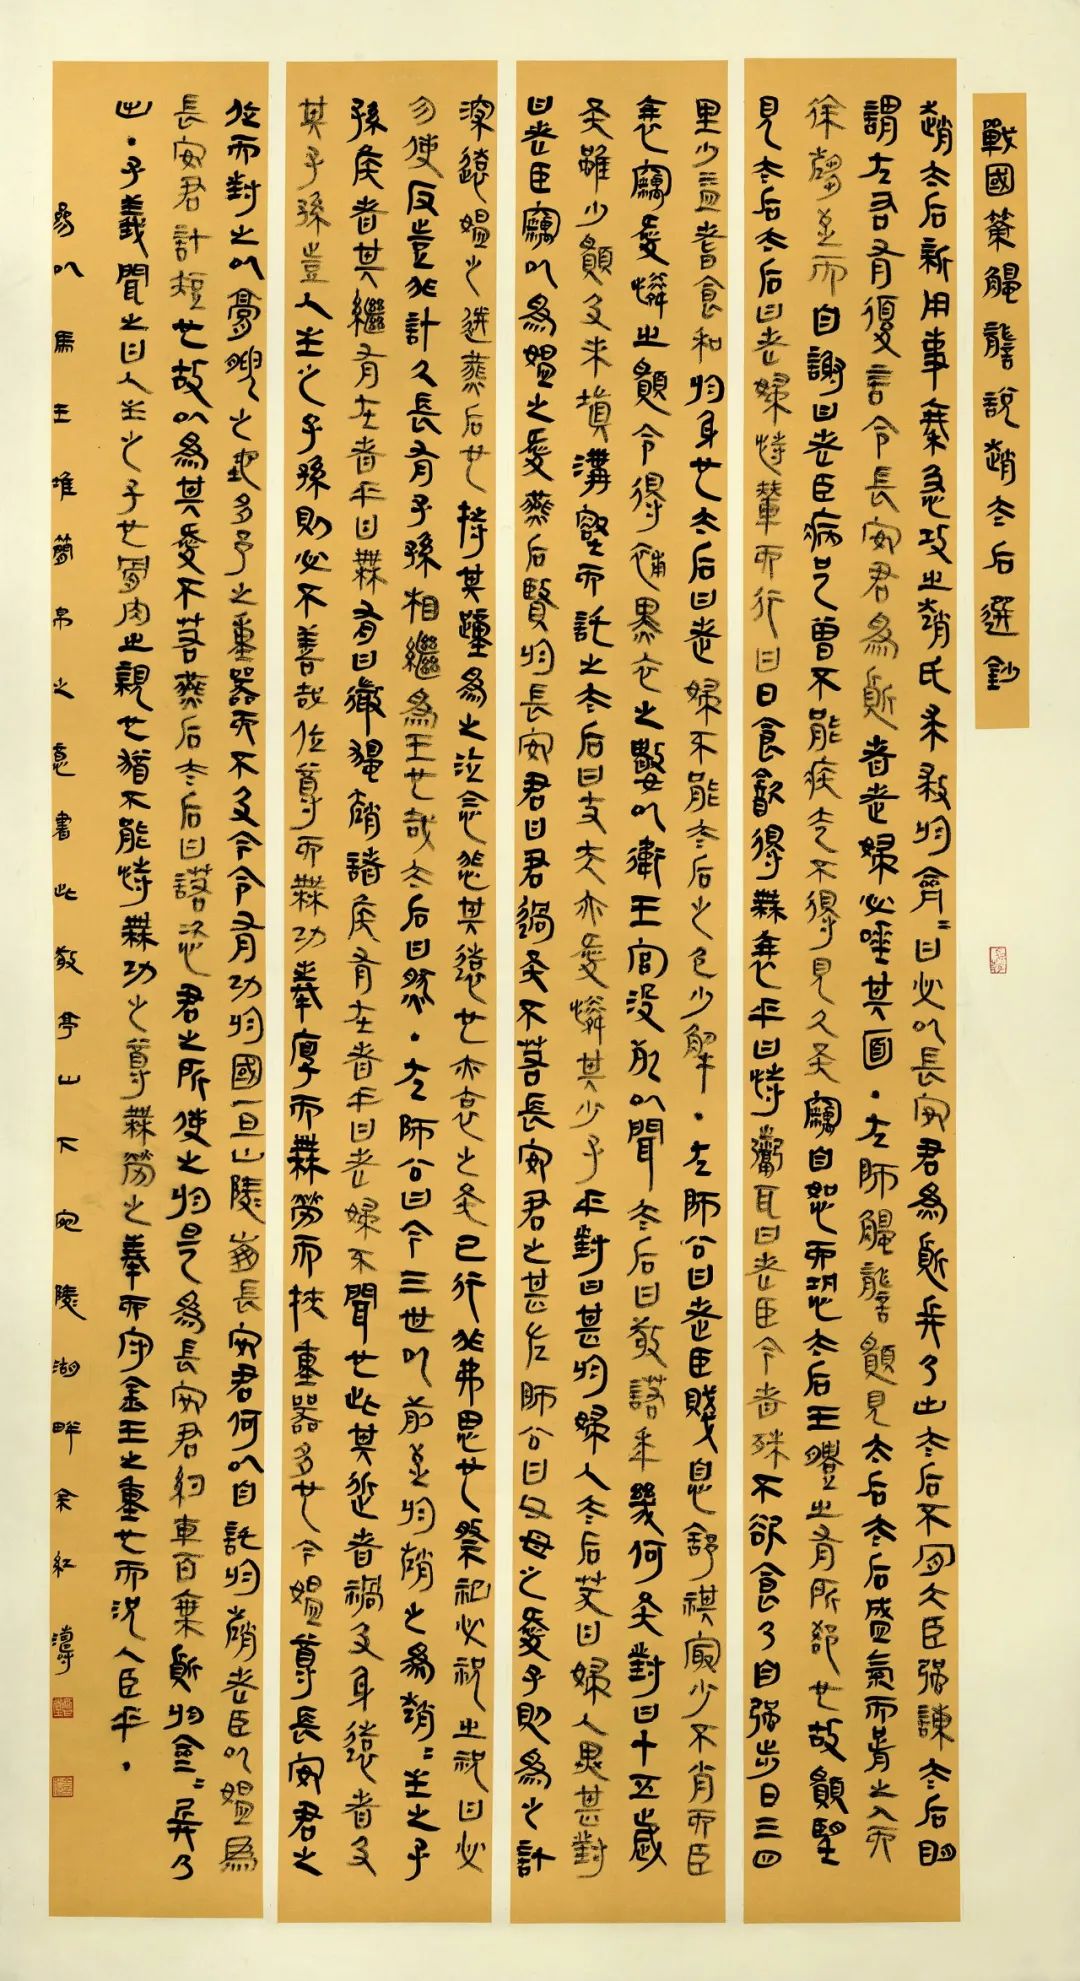 戰國策觸讋說趙太后選鈔
趙太后新用事秦急攻之趙氏求救於齊=曰必以長安君為質兵乃出太后不肎大臣強諫太后明
謂左右有復言令長安君為質者老婦必唾其面·左師觸讋願見太后太后盛氣而胥之入而
徐趨至而自謝曰老臣病足曾不能疾走不得見久矣竊自恕而恐太后玉體之有所郄也故願望
見太后太后曰老婦恃輦而行曰日食飲得無衰乎曰恃鬻耳曰老臣今者殊不欲食乃自強步日三四
里少益耆食和於身也太后曰老婦不能太后之色少解·左師公曰老臣賤息舒祺最少不肖而臣
衰竊愛憐之願令得補黑衣之數以衛王宮沒死以聞太后曰敬諾年幾何矣對曰十五歲
矣雖少願及未填溝壑而託之太后曰丈夫亦愛憐其少子乎對曰甚於婦人太后笑曰婦人異甚對
曰老臣竊以為媼之愛燕后賢於長安君曰君過矣不若長安君之甚左師公曰父母之愛子則為之計
深遠媼之送燕后也持其踵為之泣念悲其遠也亦哀之矣已行非弗思也祭祀必祝之祝曰必
勿使反豈非計久長有子孫相繼為王也哉太后曰然·左師公曰今三世以前至於趙之為趙=主之子
孫侯者其繼有在者乎曰無有曰微獨趙諸侯有在者乎曰老婦不聞也此其近者禍及身遠者及
其子孫豈人主之子孫則必不善哉位尊而無功奉厚而無勞而挾重器多也今媼尊長安君之
位而封之以膏腴之地多予之重器而不及今令有功於國一旦山陵崩長安君何以自託於趙老臣以媼為
長安君計短也故以為其愛不若燕后太后曰諾恣君之所使之於是為長安君約車百乘質於齊=兵乃
出·子義聞之曰人主之子也骨肉之親也猶不能恃無功之尊無勞之奉而守金玉之重也而況人臣乎·
易以馬王堆簡帛之意書此敬亭山下宛陵湖畔余紅濤